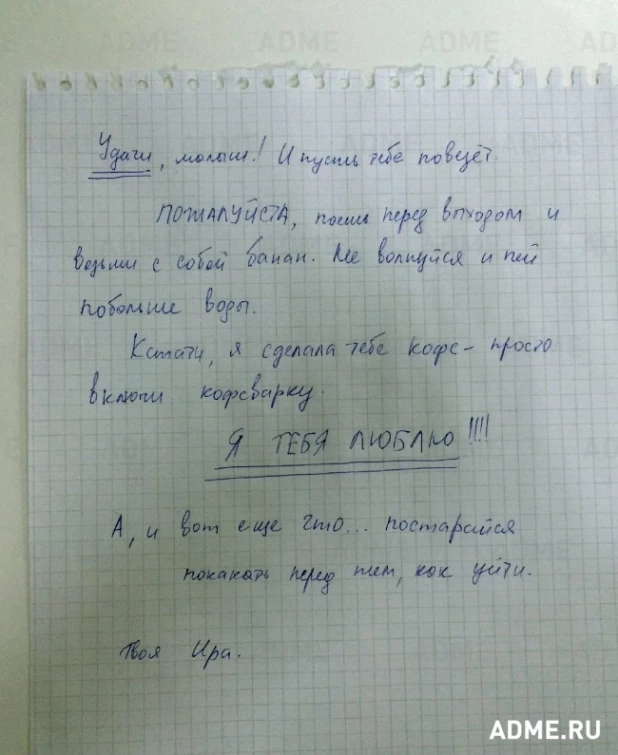 ADME ADME ADME AD
Удачи, малыш! И пусть тебе повезёт.
ПОЖАЛУЙСТА, поешь перед выходом и
возьми с собой банан. Не волнуйся и пей
побольше воды.
Кстати, я сделала тебе кофе - просто
включи кофеварку.
Я ТЕБЯ ЛЮБЛЮ!!!!
А, и вот еще что... постарайся
покакать перед тем, как уйти.
Твоя Ира.
ADME.RU